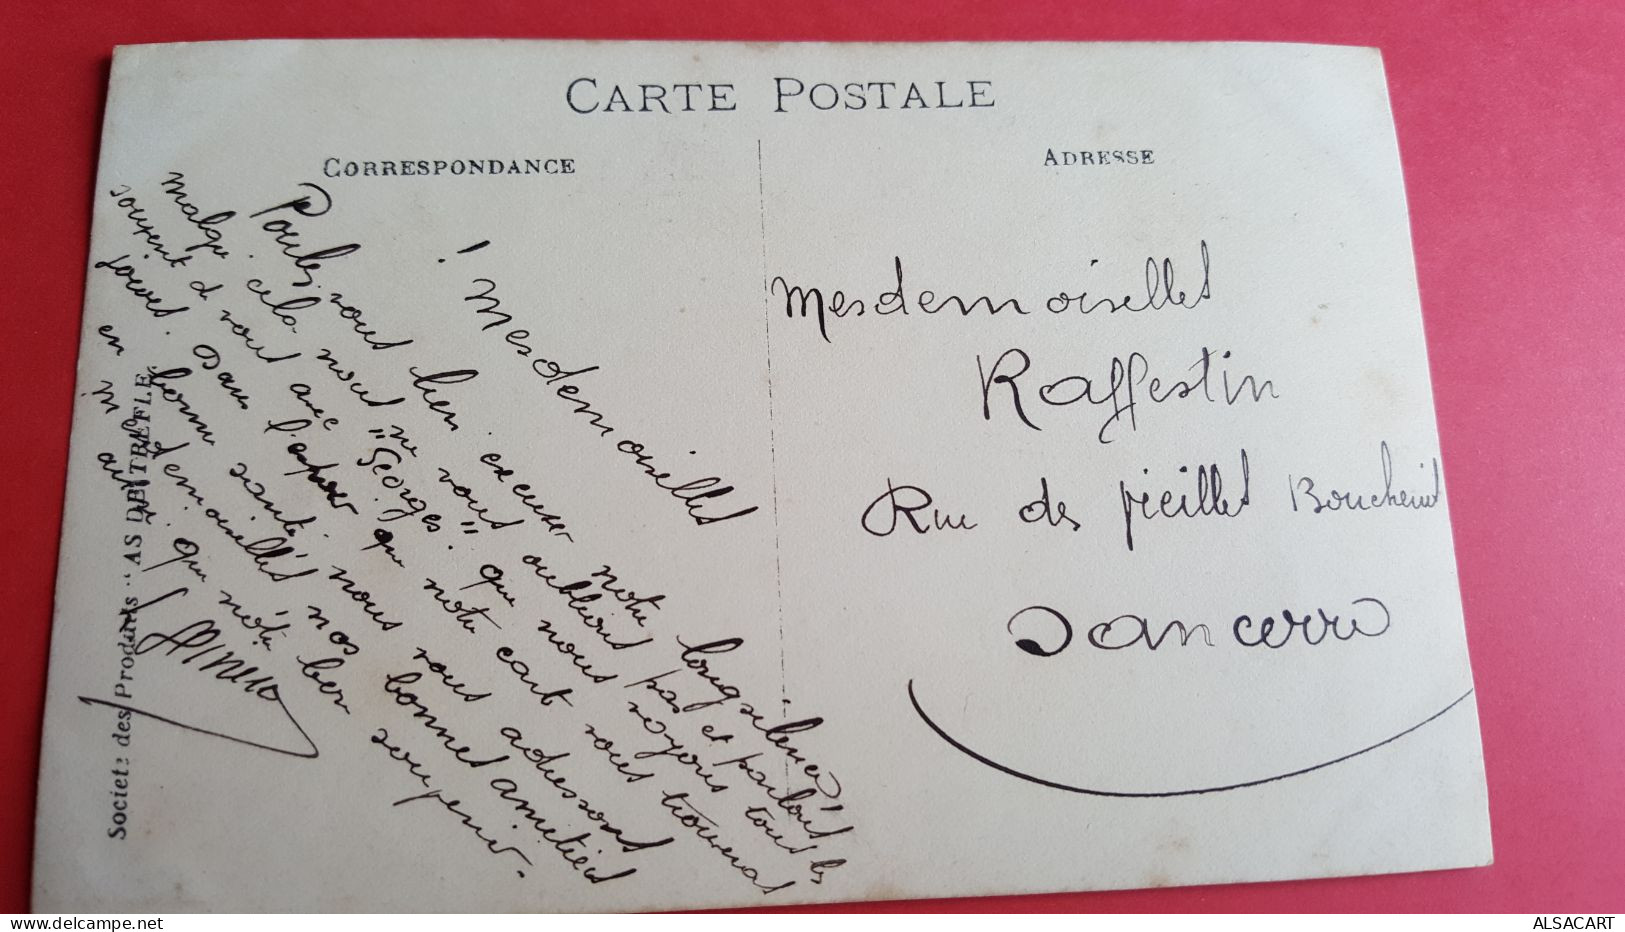 CARTE POSTALE
CORRESPONDANCE
ADRESSE
! Mesdemoiselles
Poulez vous bien excuser notre long silence!
Malgré cela nous ne vous oublions pas et parlons
souvent de vous avec "Georges". que nous voyons tous les
jours. Dans l'espoir que notre carte vous trouveras
en bonne santé nous vous adressons
Mesdemoiselles nos bonnes amitiées
ainsi que nôtre bon souvenir.
Mesdemoiselles
Raffestin
Rue des Vieilles Boucheries
Sancerre
Societe des Produits "AS DE TREFLE"
ALSACART